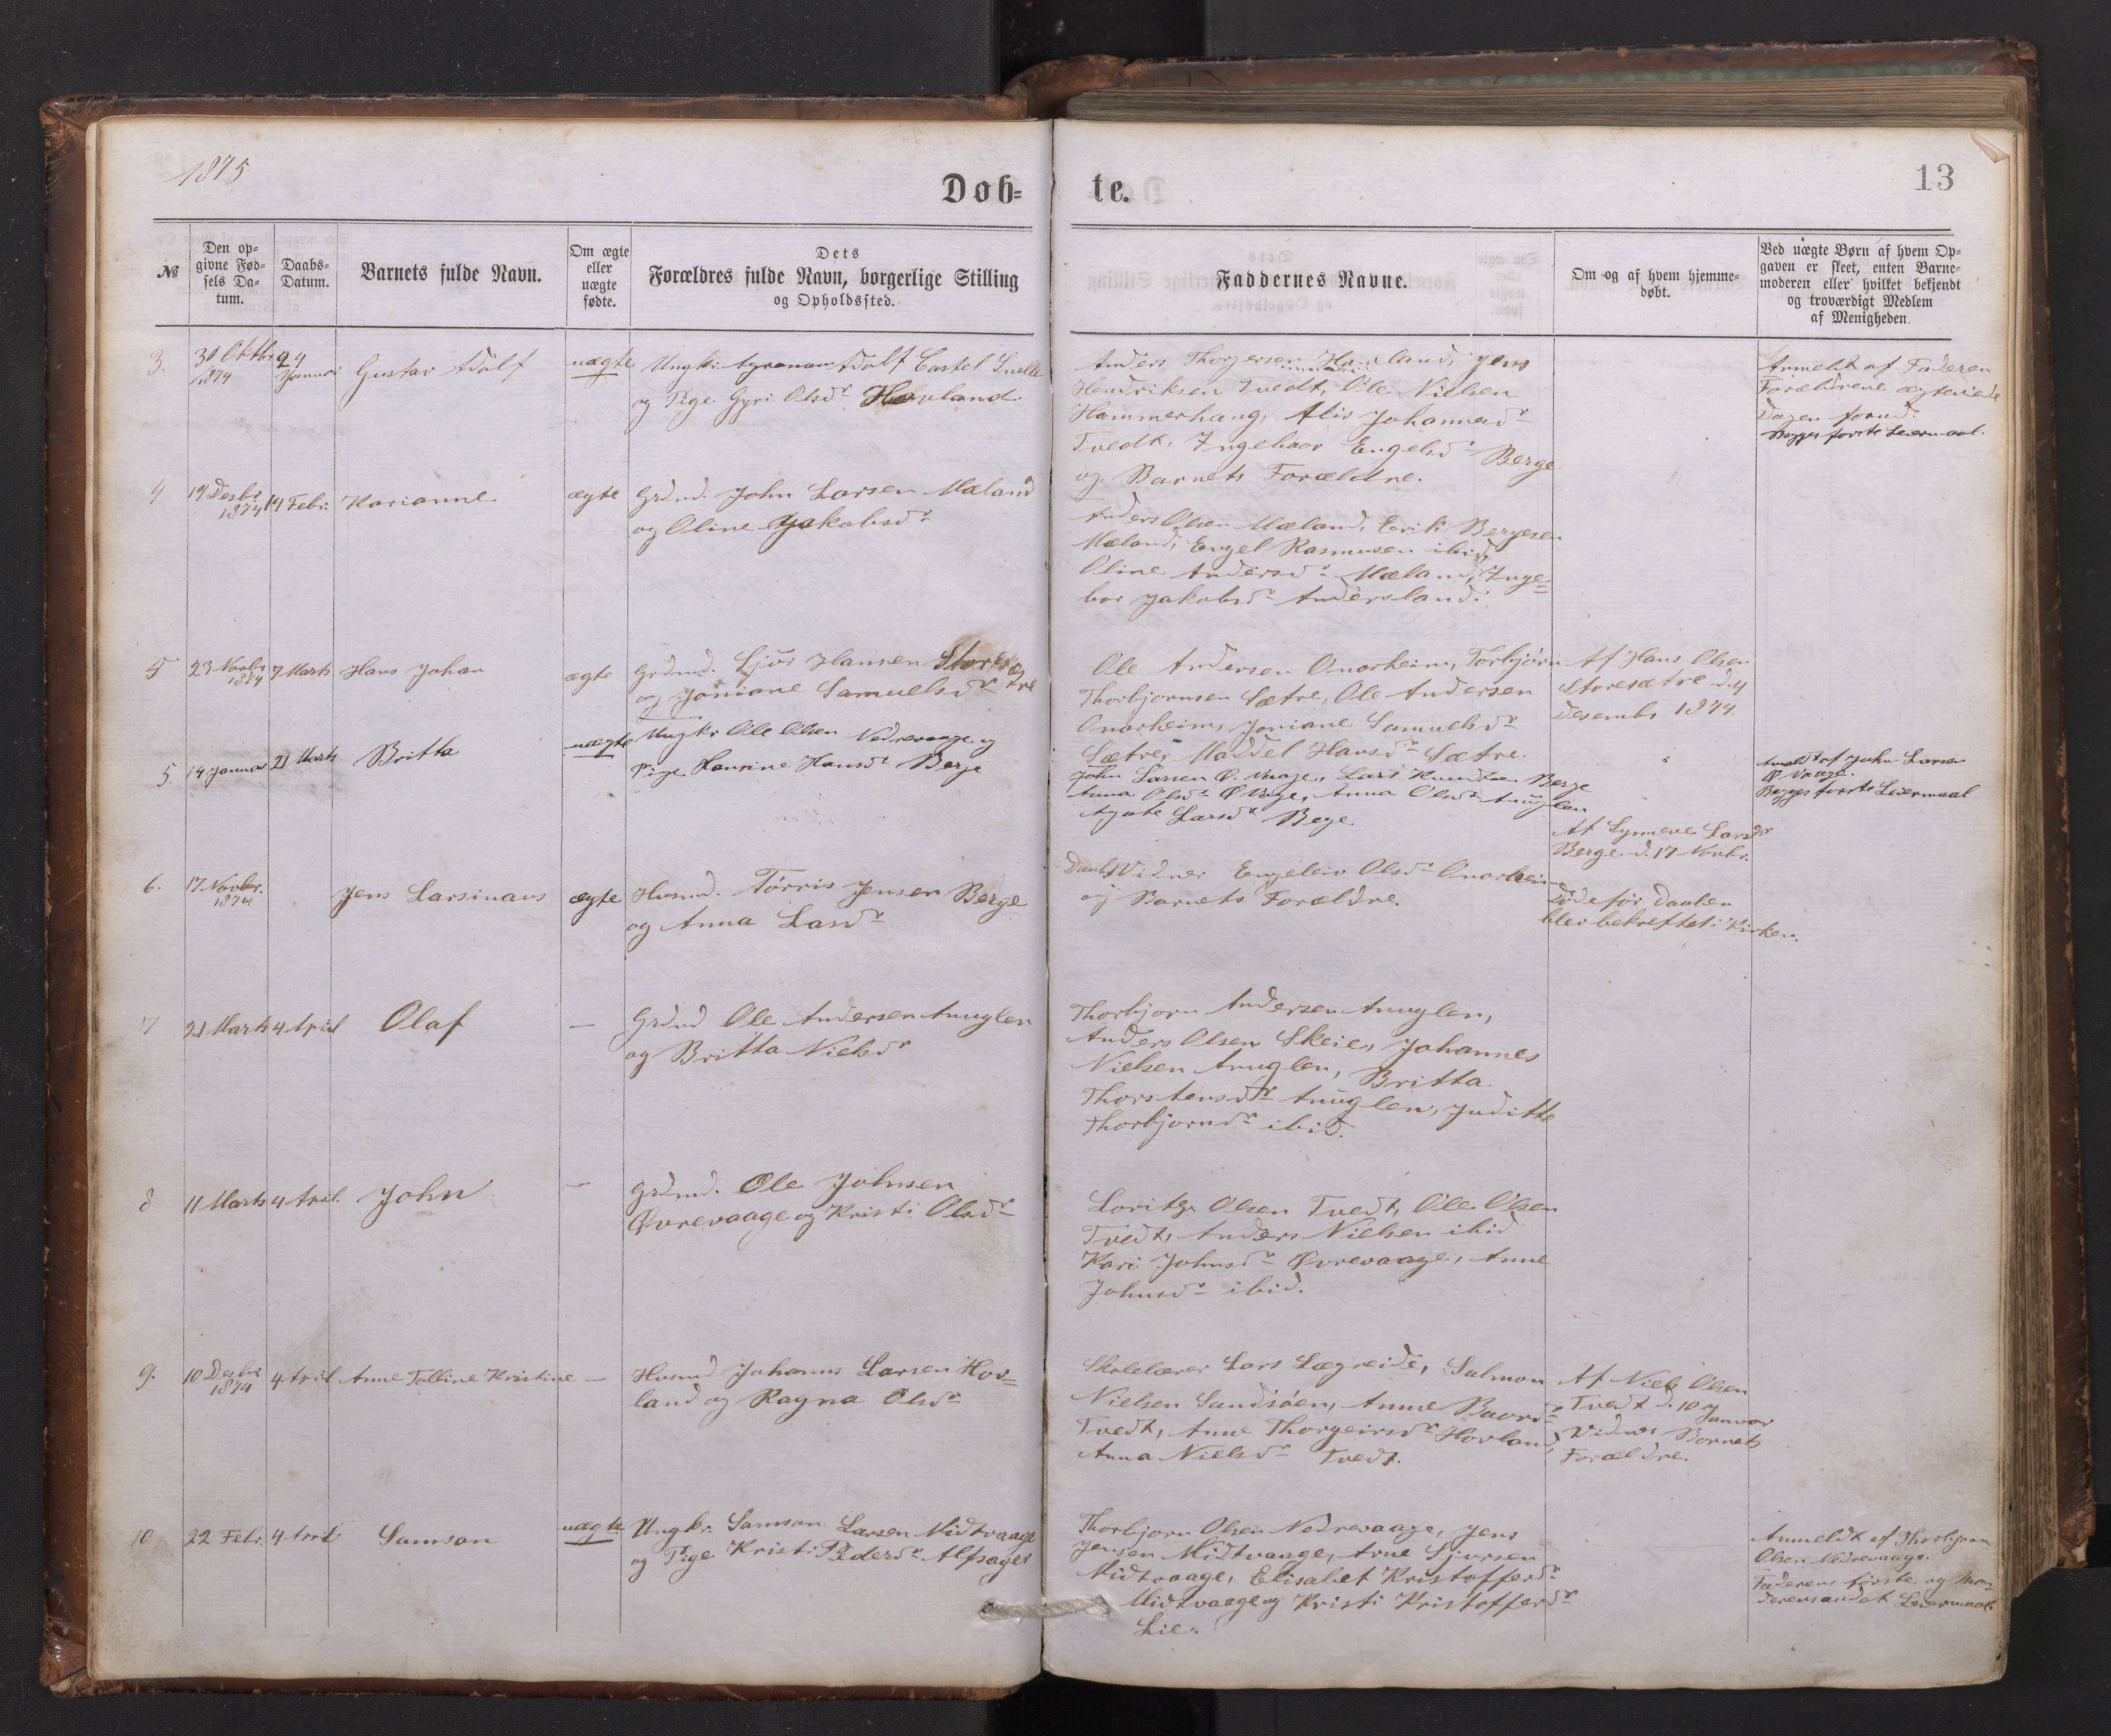 1875
Døb=
te.
13
№
Den op=
givne Fød=
sels Da=
tum.
Daabs=
Datum.
Barnets fulde Navn.
Om ægte
eller
uægte
fødte.
Dets
Forældres fulde Navn, borgerlige Stilling
og Opholdssted.
Faddernes Navne.
Om og af hvem hjemme=
døbt.
Ved uægte Børn af hvem Op=
gaven er skeet, enten Barne=
moderen eller hvilket bekjendt
og troværdigt Medlem
af Menigheden.
3.
30 Oktbr
1874
24
Januar
Gustav Adolf
uægte
Ungkr. Agronom Adolf Castel
og Pige Gyri Olsdr Havland
Anders Thorgersen Havland, Jens
Hendriksen Tvedt, Ole Nielsen
Hammerhaug, Alis Johannesdr
Tvedt, Ingeboor Engelsdr Berge
og Barnets Forældre.
Anmeldt af Faderen
Forældrene ægteviede
Dagen forud.
Begges første Leiermaal.
4
19 Desbr
1874
14 Febr.
Karianne
ægte
Grdmd. John Larsen Mæland
og Oline Jakobsdr
Anders Olsen Mæland, Erik Bergesen
Mæland, Engel Rasmusen ibid,
Oline Andersdr Mæland, Inge=
bor Jakobsdr Andersland.
5
23 Novbr
1874
7 Marts
Hans Johan
ægte
Grdmd. Sjur Hansen Storesætre
og Joniane Samuelsdr
Ole Andersen Onarheim, Torbjørn
Thorbjørnsen Sætre, Ole Andersen
Onarheim, Joniane Samuelsdr
Sætre, Maldel Hansdr Sætre.
Af Hans Olsen
Storesætre d. 4
Desembr 1874.
5
14 Januar
21 Marts
Britta
uægte
Ungkr Ole Olsen Nedrevaage og
Pige Hansine Hansdr Berge
John Larsen Ø. Vaage, Lars Knudsen Berge
Anna Olsdr Ø Vage, Anna Olsdr Anuglen
Agate Larsdr Bege
Anmeldt af John Larsen
Ø Vaage.
Begges første Leiermaal
6.
17 Novbr.
1874
Jens Larsinaus
ægte
Husmd. Tørris Jensen Berge
og Anna Lasdr
Daabs Vidner Engeleiv Olsdr Onarheim
og Barnets Forældre.
Af Synneve Larsdr
Berge d. 17 Novbr.
Døde før Daaben
blev bekreftet i Kirken.
7
21 Marts
4 April
Olaf
—
Grdmd Ole Andersen Anuglen
og Britta Nielsdr
Thorbjørn Andersen Anuglen,
Anders Olsen Skeie, Johannes
Nielsen Anuglen, Britta
Thorstensdr Anuglen, Juditte
Thorbjørnsdr ibid.
8
11 Marts
4 April.
John
—
Grdmd. Ole Johnsen
Øvrevaage og Kristi Olsdr
Loritz Olsen Tvedt, Ole Olsen
Tvedt, Anders Nielsen ibid
Kari Johnsdr Øvrevaage, Anne
Johnsdr ibid.
9.
10 Desbr
1874
4 April
Anne Tolline Kristine
—
Husmd Johannes Larsen Hov=
land og Ragna Olsdr
Skolelærer Lars Lægreide, Salmon
Nielsen Sandsøen, Anne Baardr
Tvedt, Anne Thorgeirsdr Hovland,
Anna Nielsdr Tvedt.
Af Niels Olsen
Tvedt d. 10 Januar
Vidner Barnets
Forældre.
10
22 Febr.
4 April
Samson
uægte
Ungkr. Samson Larsen Midtvaage
og Pige Kristi Pedersdr Alfsager
Thorbjørn Olsen Nedrevaage, Jens
Jensen Midtvaage, Arne Sjursen
Midtvaage, Elisabet Kristoffersdr
Midtvaage og Kristi Kristoffersdr
Lie.
Anmeldt af Thorbjørn
Olsen Nedrevaage.
Faderens første og Mo=
derens andet Leiermaal.